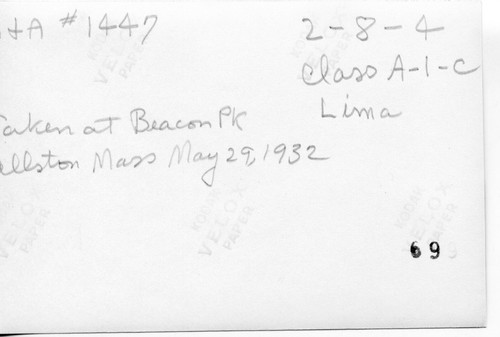 &A # 1447
2-8-4
Class A-1-C
Lima
Taken at Beacon Pk
Allston Mass May 29, 1932
KODAK
VELOX
PAPER
KODAK
VELOX
PAPER
KODAK
VELOX
PAPER
VELOX
PAPER
69